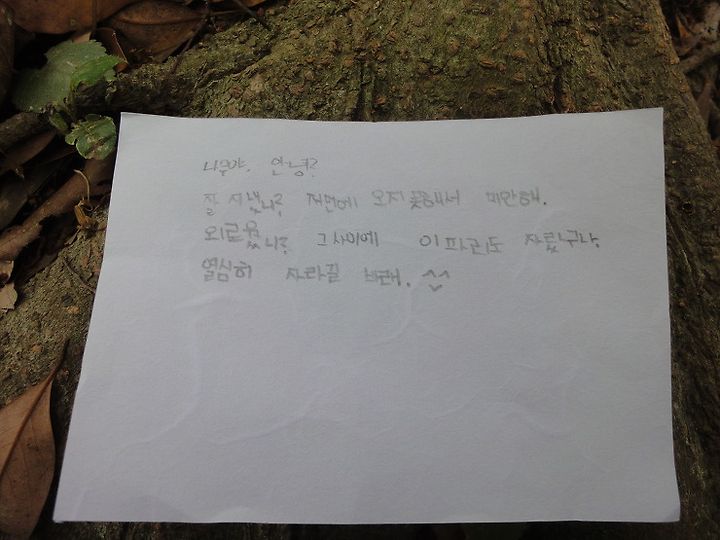 나무야, 안녕?
잘 지냈니? 저번에 오지 못해서 미안해.
외로웠니? 그 사이에 이파리도 자랐구나.
열심히 자라길 바래. ^^